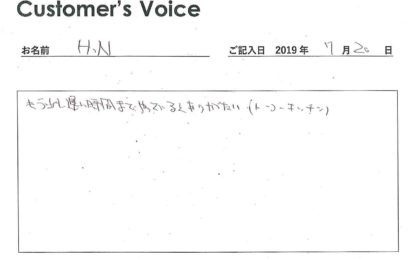 Customer's Voice
お名前 H.N ご記入日 2019年 7月20日
もう少し遅い時間まで、やっているとありがたい（トーコーキッチン）